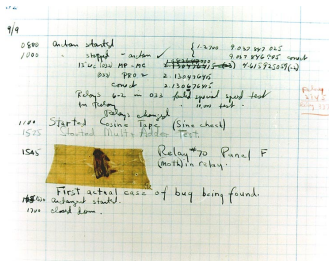 9/9
0800 antan started
1000 " stopped - antan ✓ { 1.2700 9.037 847 025
9.037 846 995 correct
13"uc (032) MP-MC 4.615925059(-2)
033 PRO 2 2.130476415
correct 2.130676415
Relays 6-2 in 033 failed special speed test
in Relay " 11.00 test.
Relays changed
1100 Started Cosine Tape (Sine check)
1525 Started Multi Adder Test.
1545 Relay #70 Panel F
(moth) in relay.
First actual case of bug being found.
antangent started.
1700 closed down.